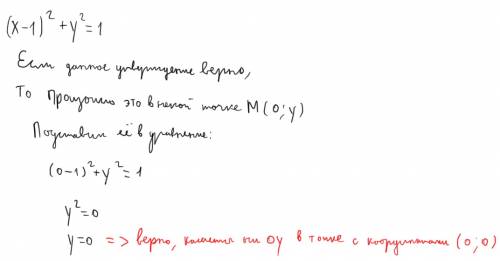 (x-1)² + y² = 1
Если данное утверждение верно,
То произошло это в некой точке M(0;y)
Подставим её в уравнение:
(0-1)² + y² = 1
y² = 0
y = 0 => верно, касается оси OY в точке с координатами (0;0)